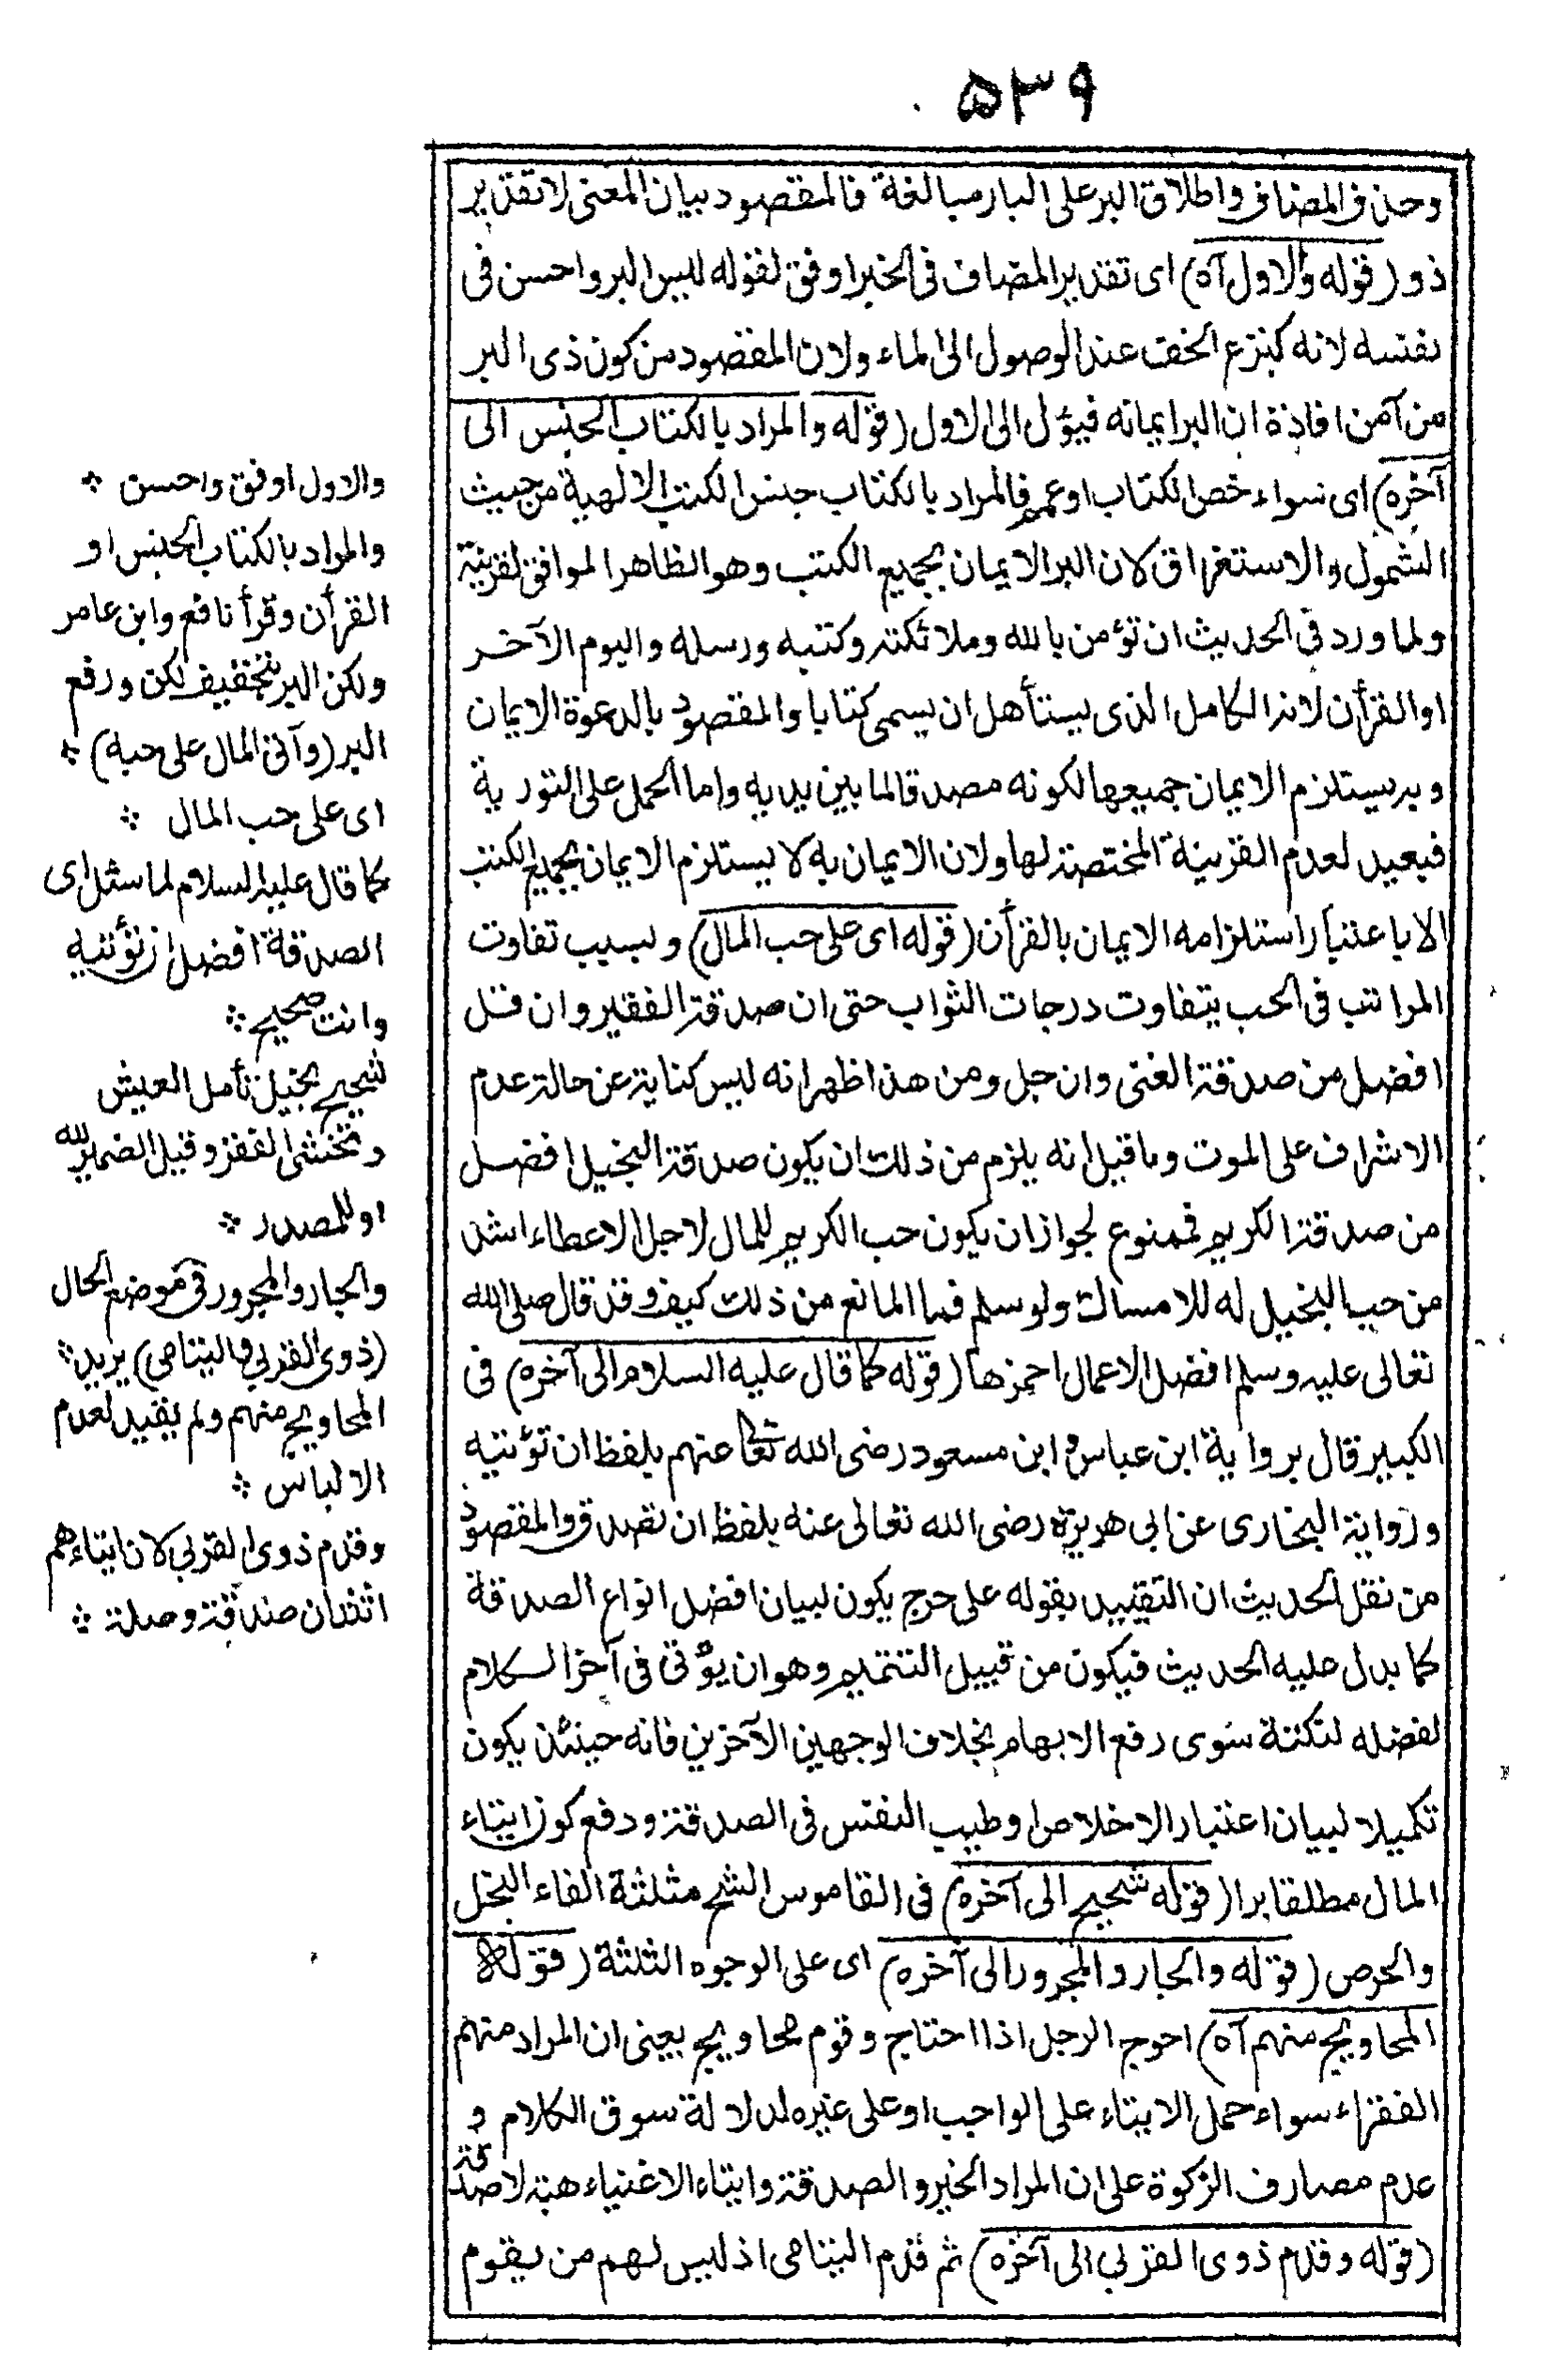 ٥٣٩
وحذف المضاف واطلاق البر على البار مبالغة فالمقصود بيان المعنى لا تقدير
ذو (قوله والاول آه) اى تقدير المضاف فى الخبر اوفق لقوله ليس البر واحسن فى
نفسه لانه كنزع الخف عند الوصول الى الماء ولان المقصود من كون ذى البر
من آمن افادة ان البر ايمانه فيؤل الى الاول (قوله والمراد بالكتاب الجنس الى
آخره) اى سواء خص الكتاب او عمم فالمراد بالكتاب جنس الكتب الالهية من حيث
الشمول والاستغراق لان البر الايمان بجميع الكتب وهو الظاهر الموافق لقرينه
ولما ورد فى الحديث ان تؤمن بالله وملائكته وكتبه ورسله واليوم الآخر
او القرأن لانه الكامل الذى يستأهل ان يسمى كتابا والمقصود بالدعوة الايمان
وبه يستلزم الايمان جميعها لكونه مصدقا لما بين يديه واما الحمل على التورية
فبعيد لعدم القرينة المختصة لها ولان الايمان به لا يستلزم الايمان بجميع الكتب
الا باعتبار استلزامه الايمان بالقرأن (قوله اى على حب المال) وبسبب تفاوت
المراتب فى الحب يتفاوت درجات الثواب حتى ان صدقة الفقير وان قل
افضل من صدقة الغنى وان جل ومن هذا ظهر انه ليس كناية عن حالة عدم
الاشراف على الموت وما قيل انه يلزم من ذلك ان يكون صدقة البخيل افضل
من صدقة الكريم فممنوع لجواز ان يكون حب الكريم للمال لاجل الاعطاء اشد
من حب البخيل له للامساك ولو سلم فما المانع من ذلك كيف وقد قال صلى الله
تعالى عليه وسلم افضل الاعمال احمزها (قوله كما قال عليه السلام الى آخره) فى
الكبير قال برواية ابن عباس وابن مسعود رضى الله تعا عنهم بلفظ ان تؤتيه
ورواية البخارى عن ابى هريرة رضى الله تعالى عنه بلفظ ان تصدق والمقصود
من نقل الحديث ان التقييد بقوله على حرج يكون لبيان افضل انواع الصدقة
كما يدل عليه الحديث فيكون من قبيل التتميم وهو ان يؤتى فى آخر الكلام
لفضله لنكتة سوى رفع الابهام بخلاف الوجهين الآخرين فانه حينئذ يكون
تكميلا لبيان اعتبار الاخلاص او طيب النفس فى الصدقة ودفع كون ايتاء
المال مطلقا برا (قوله شحيح الى آخره) فى القاموس الشح مثلثة الفاء البخل
والحرص (قوله والجار والمجرور الى آخره) اى على الوجوه الثلثة (قوله
المحاويج منهم آه) احوج الرجل اذا احتاج وقوم محاويج يعنى ان المراد منهم
الفقراء سواء حمل الايتاء على الواجب او على غيره لدلالة سوق الكلام و
عدم مصارف الزكوة على ان المراد الخير والصدقة وايتاء الاغنياء هبة لا صدقة
(قوله وقدم ذوى القربى الى آخره) ثم قدم اليتامى اذ ليس لهم من يقوم
والاول اوفق واحسن
والمراد بالكتاب الجنس او
القرأن وقرأ نافع وابن عامر
ولكن البر بتخفيف لكن ورفع
البر (وآتى المال على حبه)
اى على حب المال
كما قال عليه السلام لما سئل اى
الصدقة افضل ان تؤتيه
وانت صحيح
شحيح بخيل تأمل العيش
وتخشى الفقر وقيل الضمير لله
او للمصدر
والجار والمجرور فى موضع الحال
(ذوى القربى واليتامى) يريد
المحاويج منهم ولم يقيد لعدم
الالباس
وقدم ذوى القربى لان ايتاءهم
اثنتان صدقة وصلة